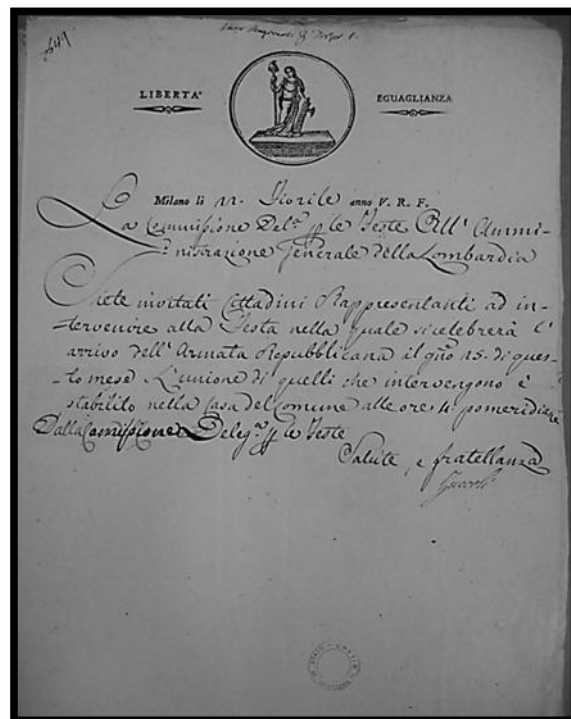 2649
LIBERTA' EGUAGLIANZA
Milano li Fiorile anno V. R. F.
La Commissione Del.ª p le Feste All' Ammi-
nistrazione Generale della Lombardia
Siete invitati Cittadini Rappresentanti ad in-
tervenire alla Festa nella quale si celebrerà l'
arrivo dell' Armata Repubblicana il gño 25. di ques-
to mese L'unione di quelli che intervengono è
stabilito nella Casa del Comune alle ore 4 pomeridiane
Dalla Commissione Deleg.ª p le Feste
Salute, e fratellanza